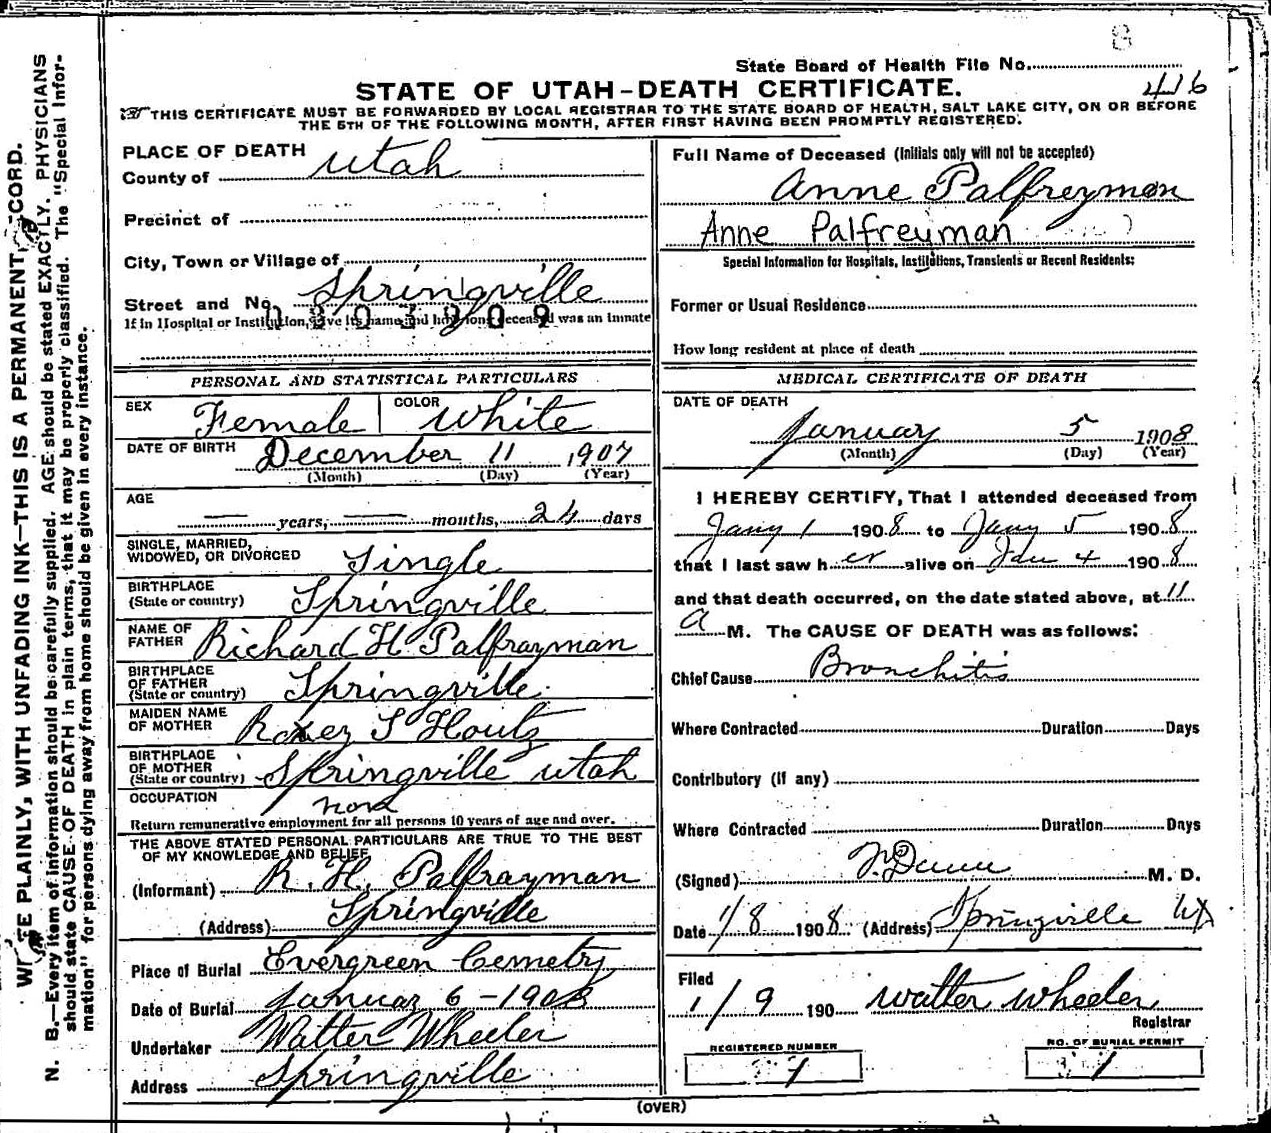 State Board of Health File No.
416
STATE OF UTAH-DEATH CERTIFICATE.
THIS CERTIFICATE MUST BE FORWARDED BY LOCAL REGISTRAR TO THE STATE BOARD OF HEALTH, SALT LAKE CITY, ON OR BEFORE
THE 5TH OF THE FOLLOWING MONTH, AFTER FIRST HAVING BEEN PROMPTLY REGISTERED.
PLACE OF DEATH
County of Utah
Precinct of
City, Town or Village of
Street and No. Springville
If in Hospital or Institution, give its name and how long deceased was an inmate
PERSONAL AND STATISTICAL PARTICULARS
SEX Female COLOR White
DATE OF BIRTH December 11 1907
(Month) (Day) (Year)
AGE
— years, — months, 24 days
SINGLE, MARRIED,
WIDOWED, OR DIVORCED Single
BIRTHPLACE
(State or country) Springville
NAME OF
FATHER Richard H Palfrayman
BIRTHPLACE
OF FATHER
(State or country) Springville
MAIDEN NAME
OF MOTHER Roxey S Houtz
BIRTHPLACE
OF MOTHER
(State or country) Springville Utah
OCCUPATION
Return remunerative employment for all persons 10 years of age and over.
THE ABOVE STATED PERSONAL PARTICULARS ARE TRUE TO THE BEST
OF MY KNOWLEDGE AND BELIEF
(Informant) R. H. Palfrayman
(Address) Springville
Place of Burial Evergreen Cemetry
Date of Burial Januar 6-1908
Undertaker Walter Wheeler
Address Springville
Full Name of Deceased (Initials only will not be accepted)
Anne Palfreyman
Anne Palfreyman
Special Information for Hospitals, Institutions, Transients or Recent Residents:
Former or Usual Residence
How long resident at place of death
MEDICAL CERTIFICATE OF DEATH
DATE OF DEATH
January 5 1908
(Month) (Day) (Year)
I HEREBY CERTIFY, That I attended deceased from
Jany 1 1908 to Jany 5 1908
that I last saw her alive on Jan 4 1908
and that death occurred, on the date stated above, at 11
a M. The CAUSE OF DEATH was as follows:
Chief Cause Bronchitis
Where Contracted Duration Days
Contributory (if any)
Where Contracted Duration Days
(Signed) M. D.
Date 1/8 1908 (Address) Springville Ut
Filed
1/9 190 Walter Wheeler
Registrar
REGISTERED NUMBER
1
NO. OF BURIAL PERMIT
1
(OVER)
PLAINLY, WITH UNFADING INK—THIS IS A PERMANENT
N. B.—Every item of information should be carefully supplied. AGE should be stated EXACTLY. PHYSICIANS
should state CAUSE OF DEATH in plain terms, that it may be properly classified. The "Special Infor-
mation" for persons dying away from home should be given in every instance.